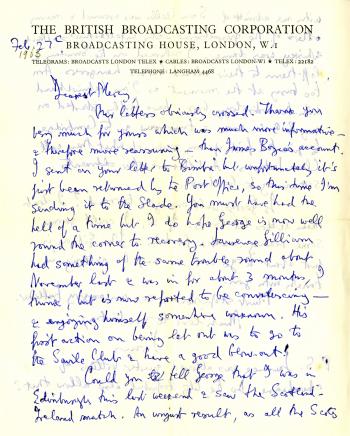 THE BRITISH BROADCASTING CORPORATION
BROADCASTING HOUSE, LONDON, W.1
TELEGRAMS: BROADCASTS LONDON TELEX ★ CABLES: BROADCASTS LONDON-W1 ★ TELEX: 22182
TELEPHONE: LANGHAM 4468
Feb. 27
1963
Dearest Mercy,
Our letters obviously crossed. Thank you
very much for yours which was much more informative –
& therefore more reassuring – than James Boyce's account.
I sent on your letter to Bimba but unfortunately it's
just been returned by the Post Office, so this time I'm
sending it to the Slade. You must have had the
hell of a time but I do hope George is now well
round the corner to recovery. Laurence Gilliam
had something of the same trouble round about
November last & was in for about 3 months I
think, but is now reported to be convalescing –
& enjoying himself somewhere unknown. His
first action on being let out was to go to
the Savile Club & have a good blow-out!
Could you tell George that I was in
Edinburgh this last weekend & saw the Scotland-
Ireland match. An unjust result, as all the Scots